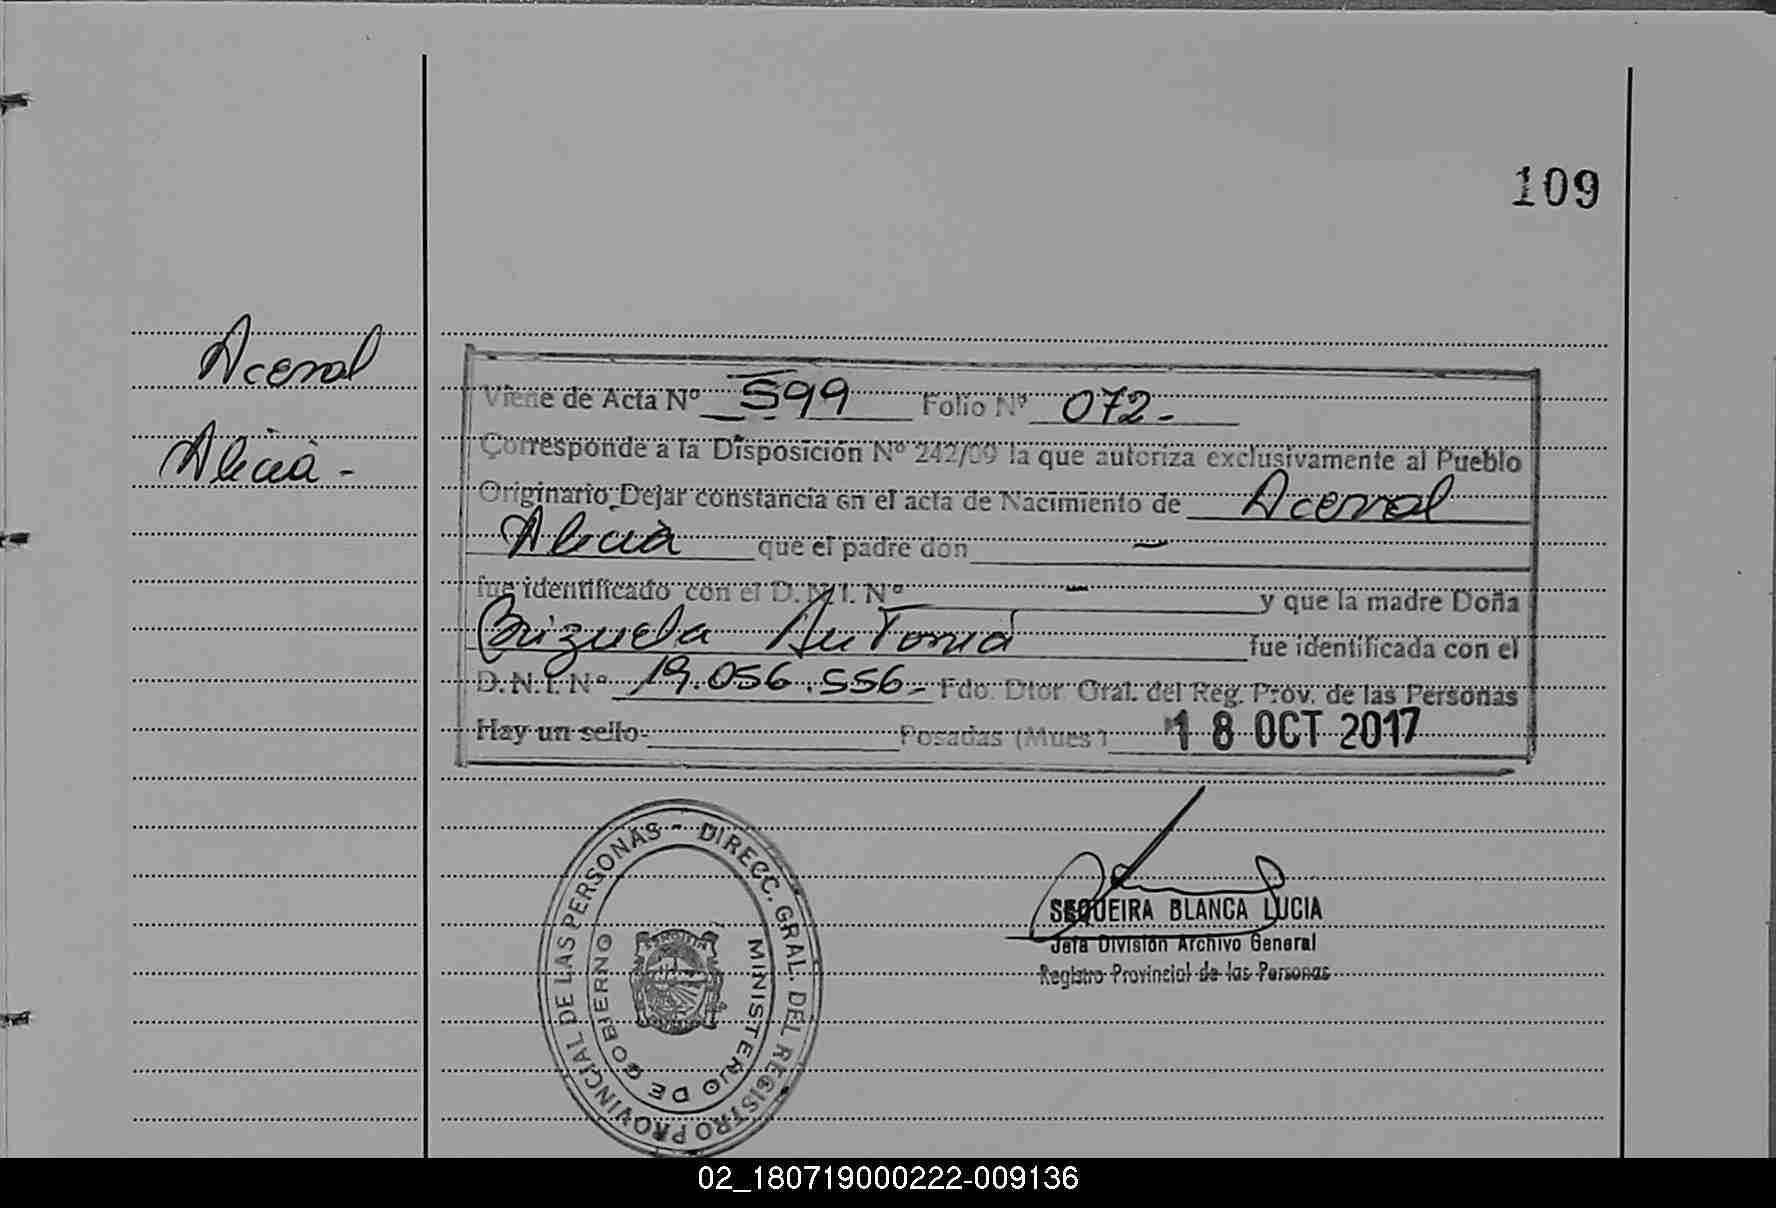 109
Acerral
Alicia -
Viene de Acta Nº 599 Folio Nº 072-
Corresponde a la Disposición Nº 242/09 la que autoriza exclusivamente al Pueblo
Originario Dejar constancia en el acta de Nacimiento de Acerral
Alicia que el padre don -
fue identificado con el D.N.I. Nº - y que la madre Doña
Brizuela Antonia fue identificada con el
D.N.I. Nº 19.056.556- Fdo. Dtor Gral. del Reg. Prov. de las Personas
Hay un sello- Posadas (Mnes) 18 OCT 2017
DIRECC. GRAL. DEL REGISTRO PROVINCIAL DE LAS PERSONAS -
MINISTERIO DE GOBIERNO
SEQUEIRA BLANCA LUCIA
Jefa División Archivo General
Registro Provincial de las Personas
02_180719000222-009136